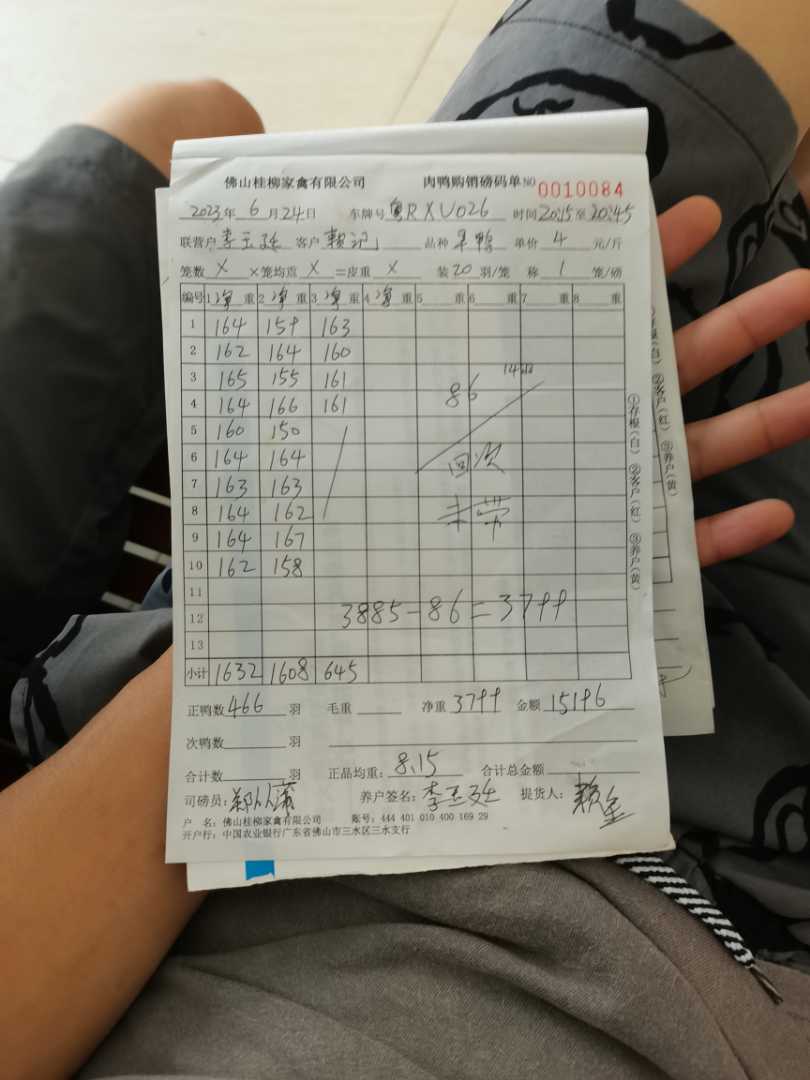 佛山桂柳家禽有限公司 肉鸭购销磅码单 NO 0010084
2023年 6月 24日 车牌号 粤RXU026 时间 20:15至20:45
联营户 客户 赖记 品种 鸭 单价 4 元/斤
笼数 X ×笼均重 X =皮重 X 装20羽/笼 称 1 笼/磅
编号 1净重 2净重 3净重 4净重 5 重 6 重 7 重 8 重
1 164 159 163
2 162 164 160
3 165 155 161
4 164 166 161
5 160 150
6 164 164
7 163 163
8 164 162
9 164 167
10 162 158
11
12
13
86
回次
未带
3885-86=3799
小计 1632 1608 645
正鸭数 466 羽 毛重 净重 3799 金额 15196
次鸭数 羽
合计数 羽 正品均重: 8.15 合计总金额
司磅员: 养户签名: 提货人:
户 名: 佛山桂柳家禽有限公司 账号: 444 401 010 400 169 29
开户行: 中国农业银行广东省佛山市三水区三水支行
①存根(白) ②客户(红) ③养户(黄)
②客户(红) ③养户(黄)